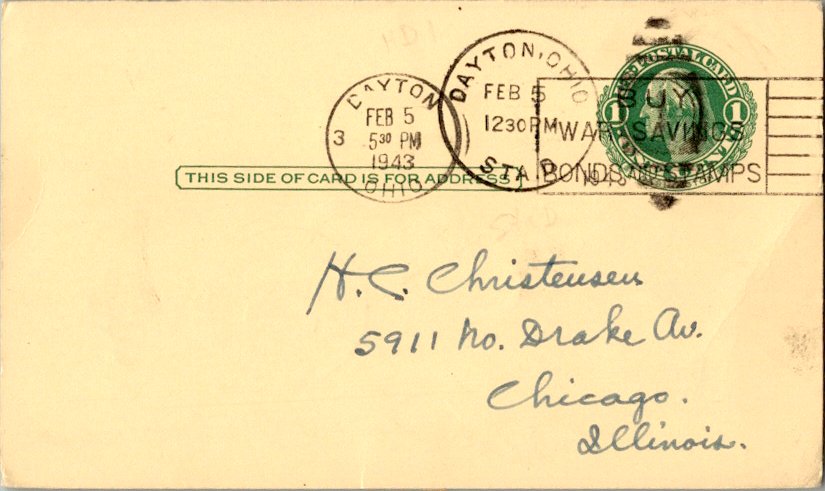 U.S. POSTAL CARD
1 1
ONE CENT
DAYTON
FEB 5
3 5 30 PM
1943
OHIO
DAYTON, OHIO
FEB 5
12 30 PM
STA. D
BUY
WAR SAVINGS
BONDS AND STAMPS
THIS SIDE OF CARD IS FOR ADDRESS
H. C. Christensen
5911 No. Drake Av.
Chicago.
Illinois.